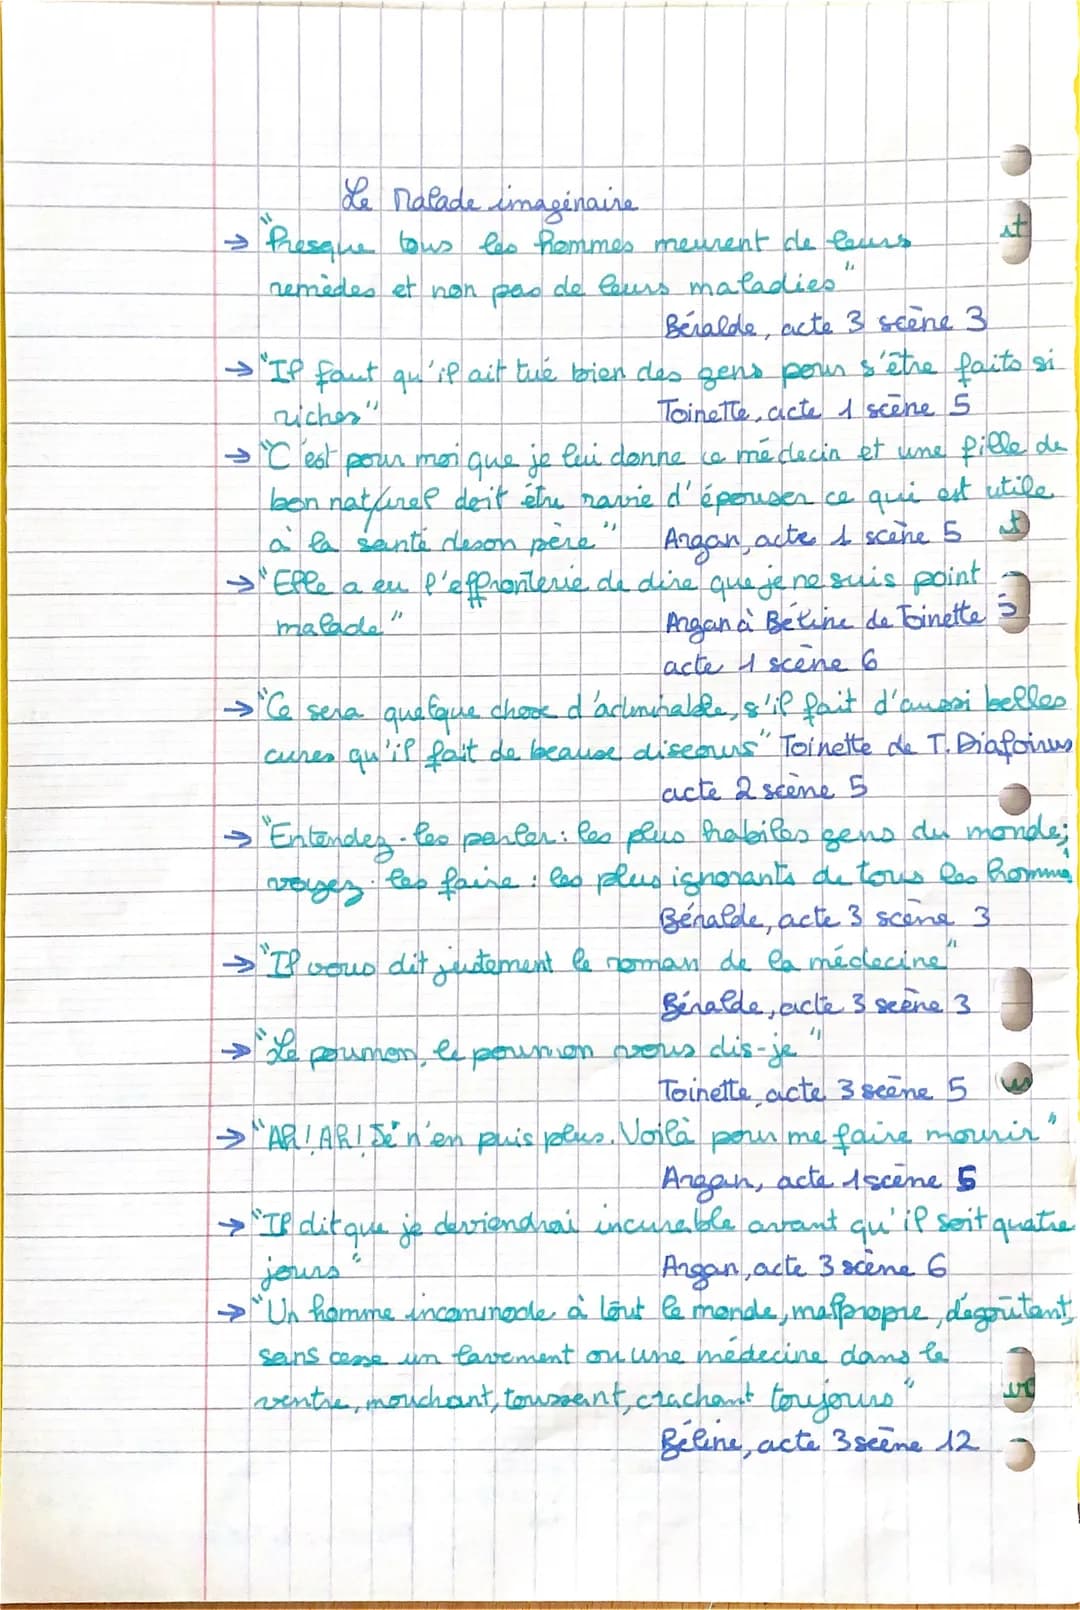 Le Malade imaginaire
→ "Presque tous les hommes meurent de leurs
remèdes et non pas de leurs maladies"
Béralde, acte 3 scène 3
→ "Il faut qu'il ait tué bien des gens pour s'être faits si
riches"
Toinette, acte 1 scène 5
→ "C'est pour moi que je lui donne ce médecin et une fille de
bon naturel doit être ravie d'épouser ce qui est utile
à la santé de son père"
Argan, acte 1 scène 5
→ "Elle a eu l'effronterie de dire que je ne suis point
malade"
Argan à Béline de Toinette
acte 1 scène 6
→ "Ce sera quelque chose d'admirable, s'il fait d'aussi belles
cures qu'il fait de beaux discours" Toinette de T. Diafoirus
acte 2 scène 5
→ "Entendez-les parler: les plus habiles gens du monde;
voyez-les faire: les plus ignorants de tous les hommes
Béralde, acte 3 scène 3
→ "Il vous dit justement le roman de la médecine"
Béralde, acte 3 scène 3
→ "Le poumon, le poumon vous dis-je"
Toinette, acte 3 scène 5
→ "Ah! Ah! Je n'en puis plus. Voilà pour me faire mourir"
Argan, acte 1 scène 5
→ "Il dit que je deviendrai incurable avant qu'il soit quatre
jours"
Argan, acte 3 scène 6
→ "Un homme incommode à tout le monde, malpropre, dégoûtant,
sans cesse un lavement ou une médecine dans le
ventre, mouchant, toussant, crachant toujours"
Béline, acte 3 scène 12